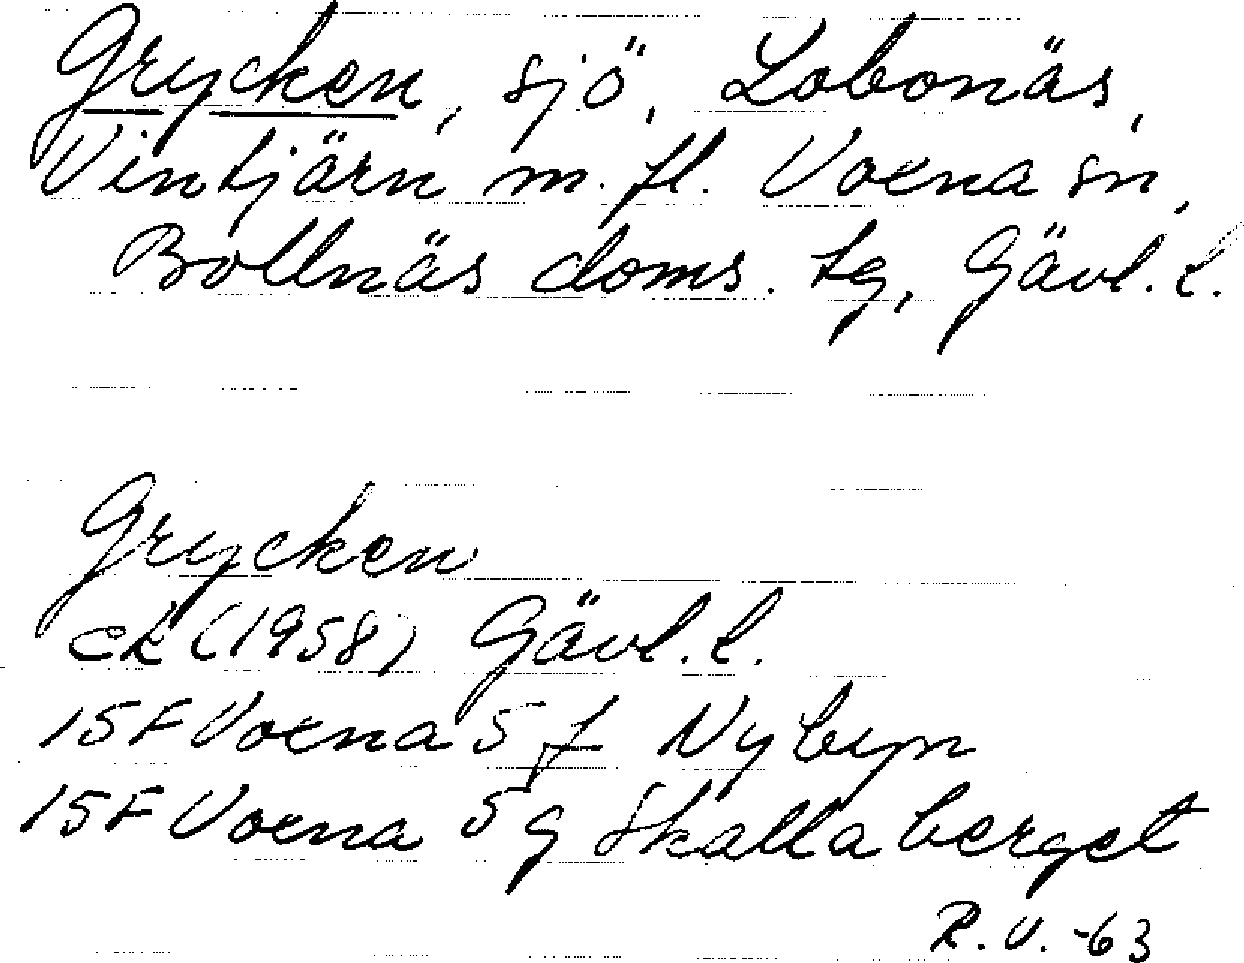 Grycken, sjö, Lobonäs,
Vintjärn m. fl. Voxna sn,
Bollnäs doms. tg, Gävl. l.
Grycken
ek (1958) Gävl. l.
15F Voxna 5 f Nybyn
15F Voxna 5 g Skallaberget
R. V. -63